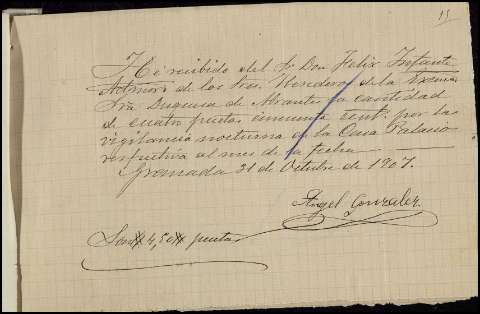 11
He recibido del Sr Don Felix Infante
Admor de los Sres. Herederos de la Excma
Sra Duquesa de Abrantes la cantidad
de cuatro pesetas cincuenta cent. por la
vigilancia nocturna en la Casa Palacio
respectiva al mes de la fecha.
Granada 31 de Octubre de 1907.
Angel Gonzalez.
Son # 4,50 # pesetas